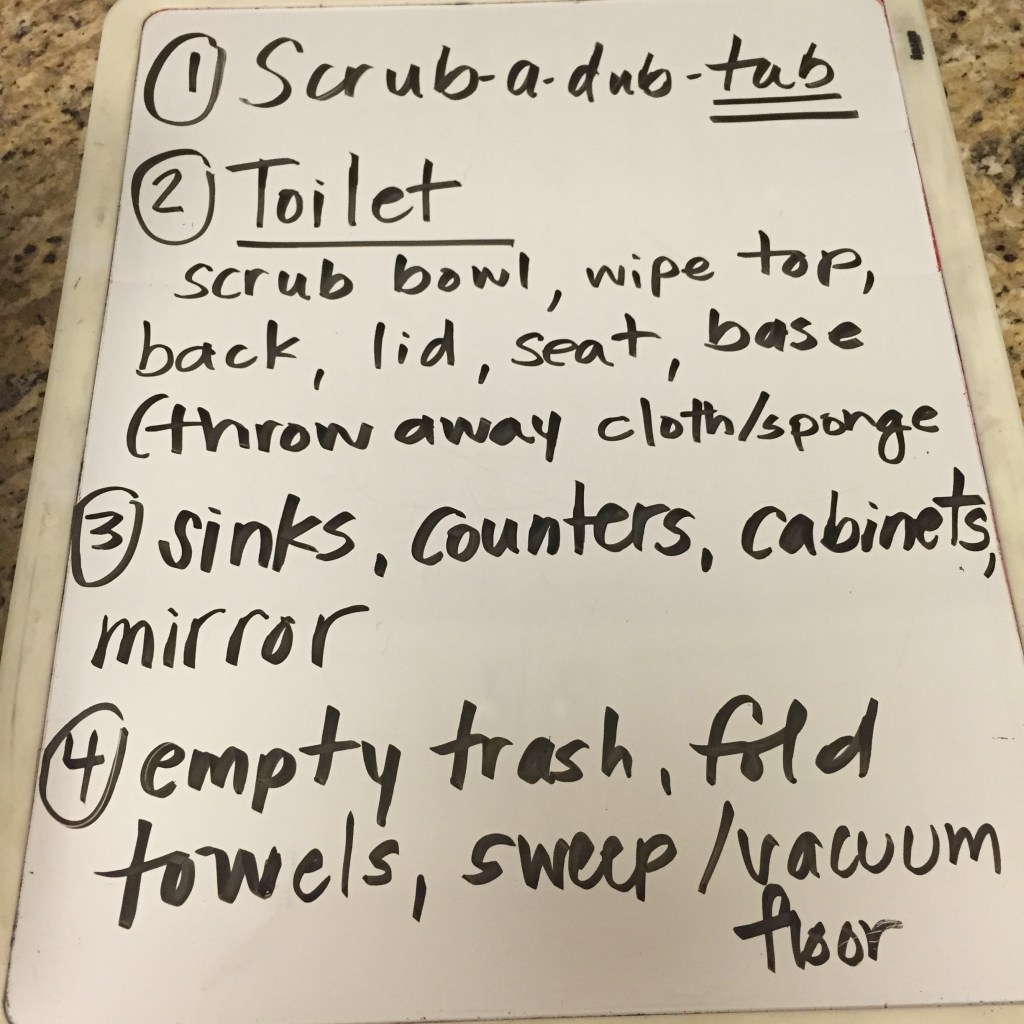 1 Scrub-a-dub-tub
2 Toilet
scrub bowl, wipe top,
back, lid, seat, base
(throw away cloth/sponge
3 sinks, counters, cabinets,
mirror
4 empty trash, fold
towels, sweep/vacuum
floor